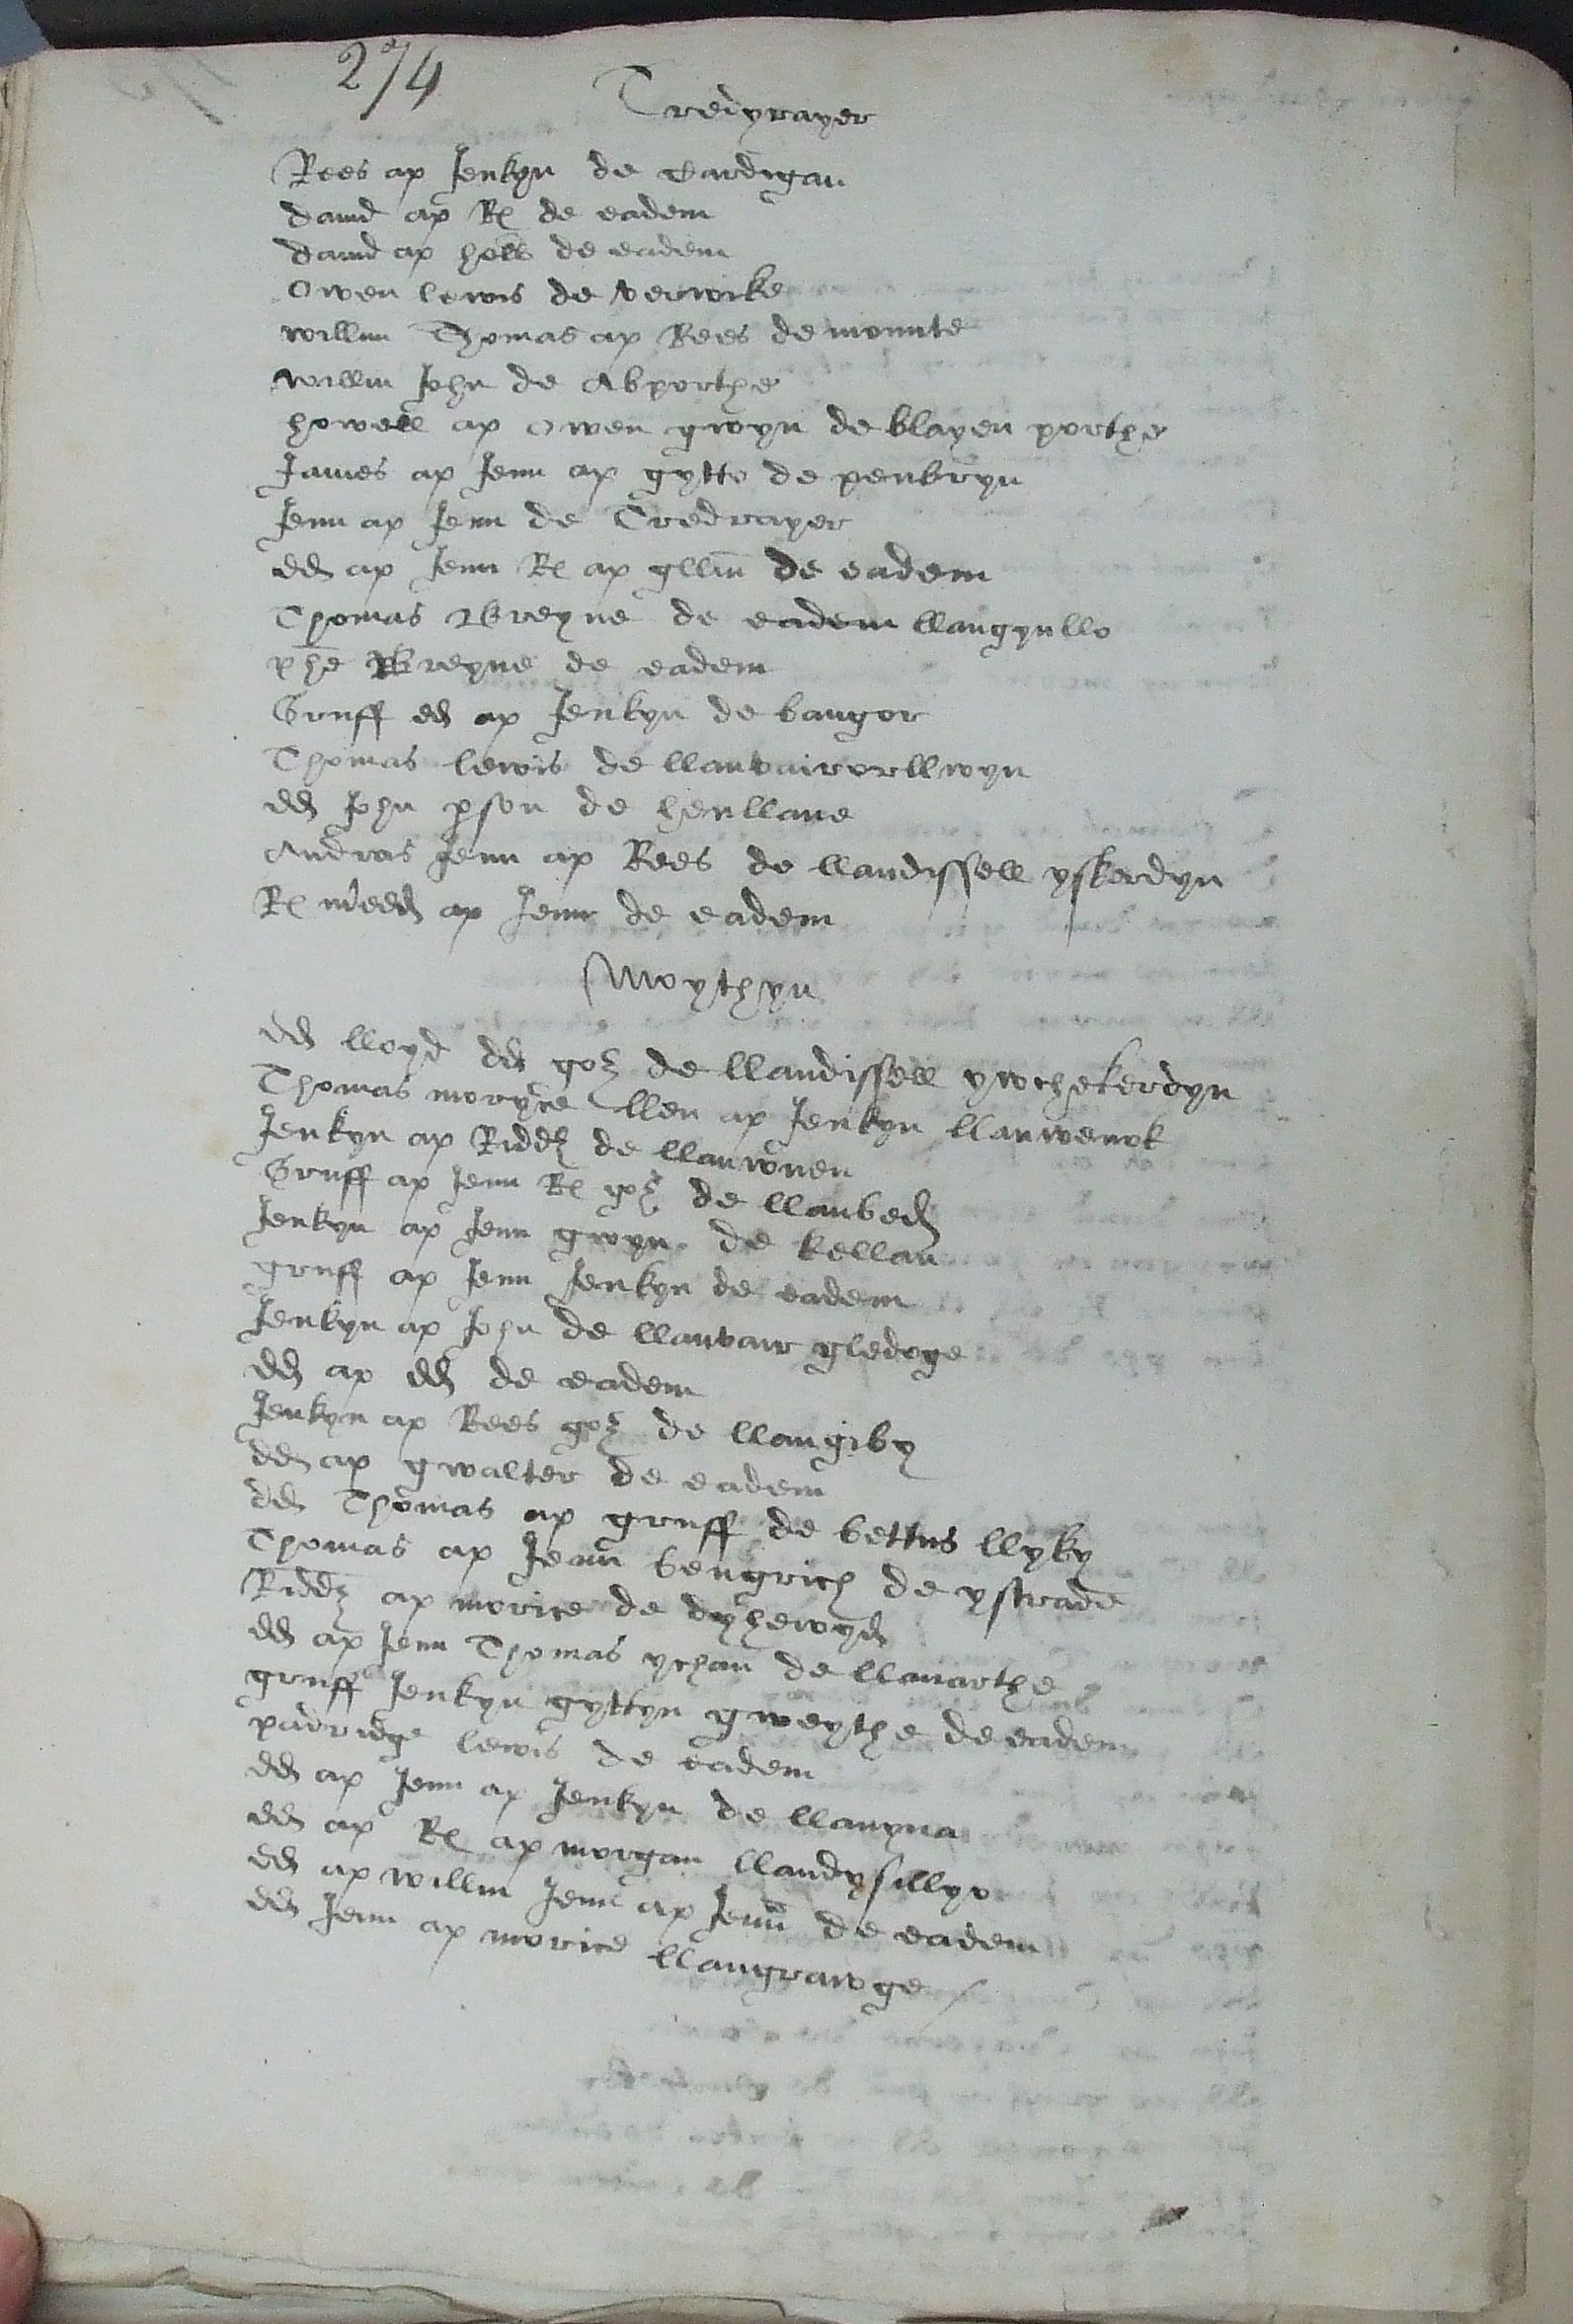 274
Tredyrayer
Rees ap Jenkyn de Cardigan
dauid ap Re de eadem
dauid ap hoell de eadem
Owen lewis de verwike
willim Thomas ap Rees de mounte
willm John de Abporthe
howell ap owen gwyn de blayen porthe
James ap Jeuu ap gytto de penbryn
Jeuu ap Jeuu de Tredrayer
dd ap Jeuu Re ap gllim de eadem
Thomas Breyne de eadem llangynllo
phe Breyne de eadem
Gruff dd ap Jenkyn de bangor
Thomas lewis de llanvairorllwyn
dd John pson de henllane
Andras Jeuu ap Rees de llandissell yskerdyn
Re ap Jeuu de eadem
Moythyn
dd lloyd dd goz de llandissell ywchekerdyn
Thomas moryce llen ap Jenkyn llanwenok
Jenkyn ap Riddz de llanwnen
Gruff ap Jeuu Re goz de llanbed
Jenkyn ap Jeuu gwyn de kellan
gruff ap Jeuu Jenkyn de eadem
Jenkyn ap John de llanvair gledoge
dd ap dd de eadem
Jenkyn ap Rees goz de llangiby
dd ap gwalter de eadem
dd Thomas ap gruff de bettus llyky
Thomas ap Jeuu bengrich de ystrade
Riddz ap morice de dyhewyd
dd ap Jeuu Thomas ychan de llanarthe
gruff Jenkyn gyttyn gweythe de eadem
padridge lewis de eadem
dd ap Jeuu ap Jenkyn de llanyna
dd ap Re ap morgan llandysillyo
dd ap willm Jeuu ap Jeuu de eadem
dd Jeuu ap morice llangrawge